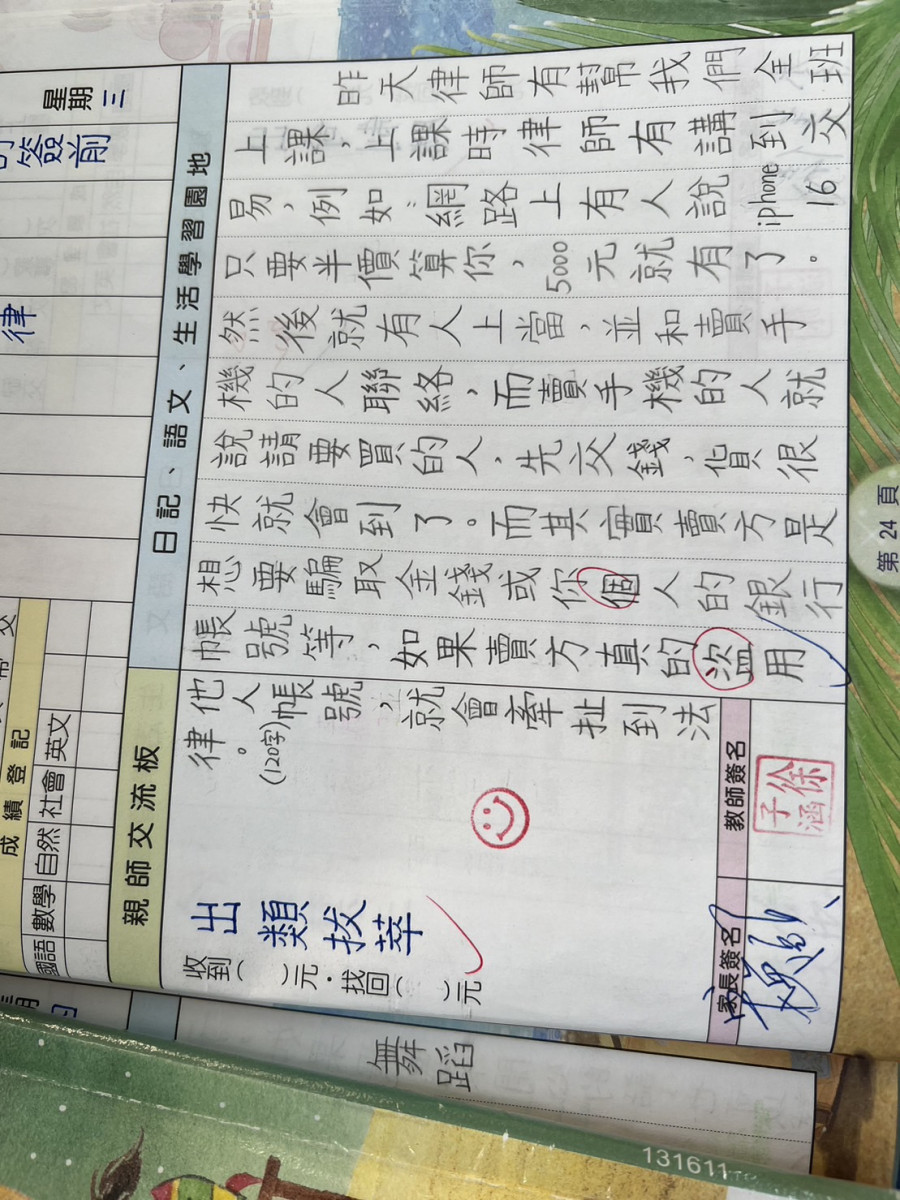 星期三
簽前
律
日記、語文、生活學習園地
昨天律師有幫我們全班
上課，上課時律師有講到交
易，例如：網路上有人說iphone 16
只要半價算你，5000元就有了。
然後就有人上當，並和賣手
機的人聯絡，而賣手機的人就
說請要買的人，先交錢，貨很
快就會到了。而其實賣方是
想要騙取金錢或你個人的銀行
帳號等，如果賣方真的盜用
他人帳號，就會牽扯到法
律。(120字)
成績登記
國語
數學
自然
社會
英文
親師交流板
出類拔萃
收到( )元．找回( )元
教師簽名
徐子涵
家長簽名
第24頁
舞蹈
131611